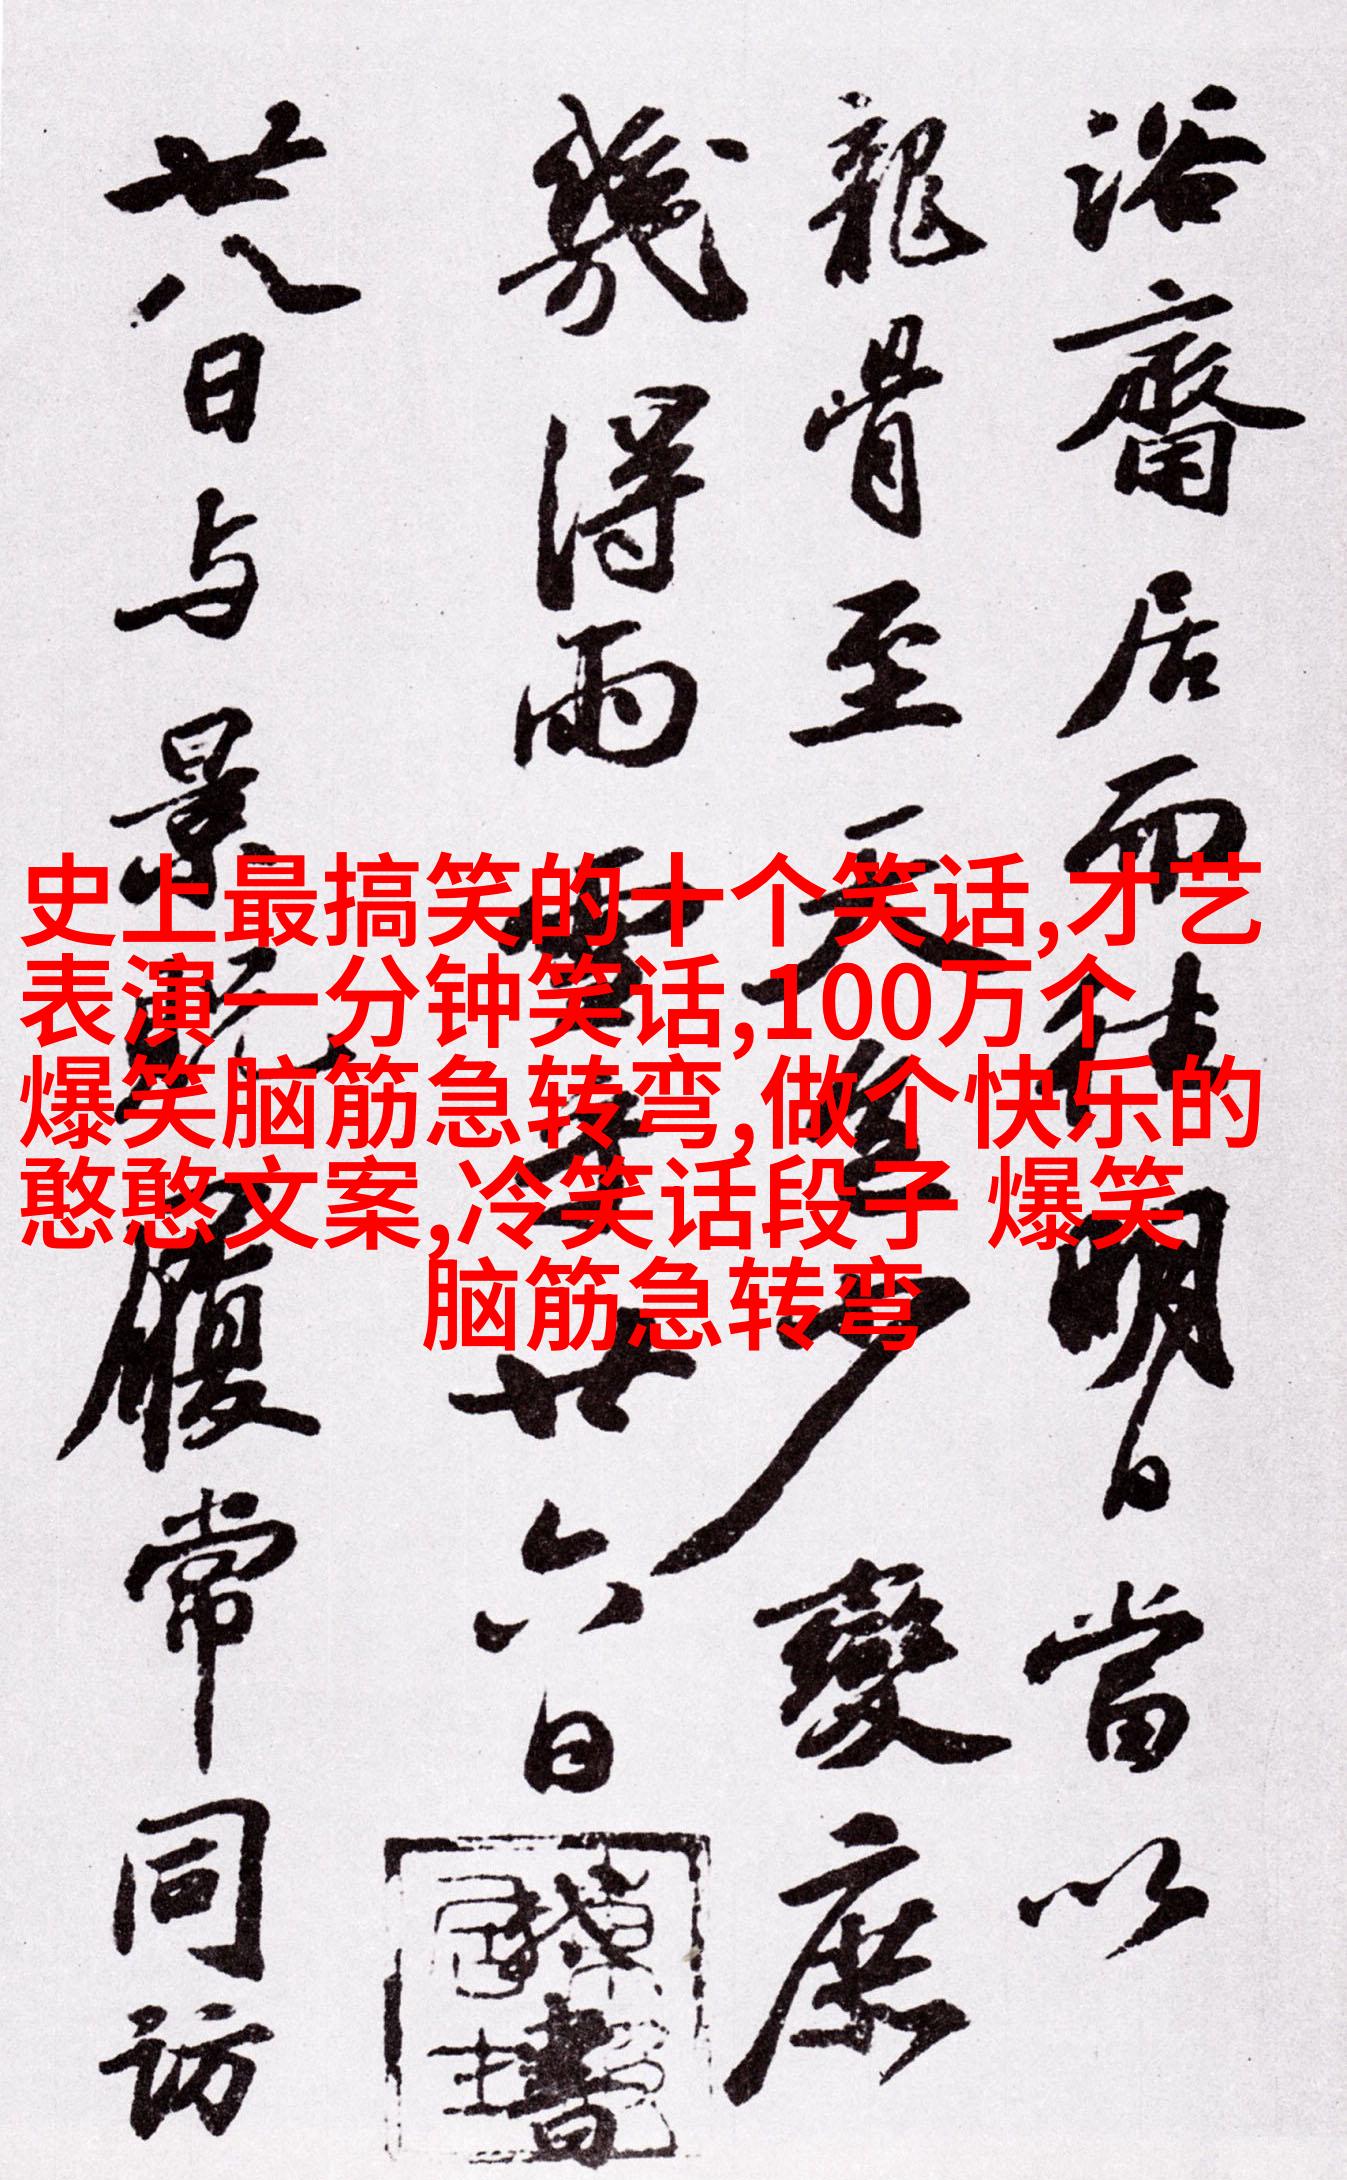 浴齋居而往明日當以
龍骨至天慶少變庶
幾得雨雪辛廿六日
書
廿八日与景
履常同訪
史上最搞笑的十个笑话,才艺
表演一分钟笑话,100万个
爆笑脑筋急转弯,做个快乐的
憨憨文案,冷笑话段子 爆笑
脑筋急转弯